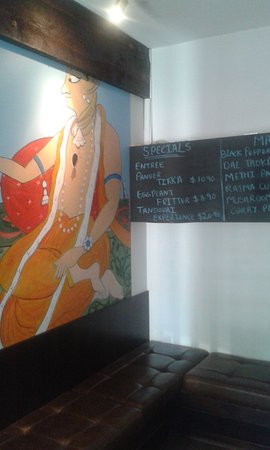 SPECIALS
ENTREE
PANEER
TIKKA $10.90
EGGPLANT
FRITTER $8.90
TANDOORI
EXPERIENCE $20.90
MA
BLACK PEPPER
DAL TADKA
METHI
RAJMA
MUSHROO
CURRY